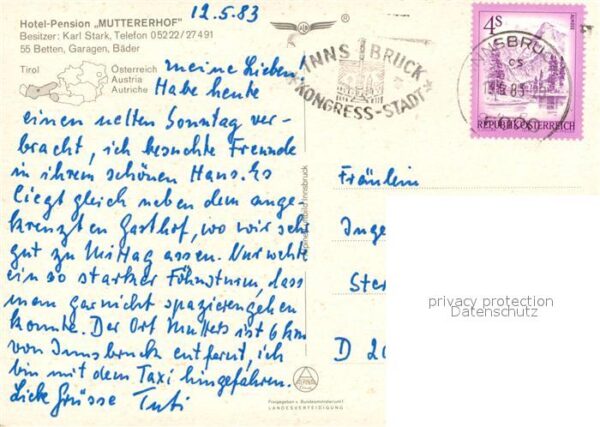 12.5.83
Hotel-Pension „MUTTERERHOF"
Besitzer: Karl Stark, Telefon 05222/27491
55 Betten, Garagen, Bäder
Tirol
Österreich
Austria
Autriche
meine Lieben!
Habe heute
einen netten Sonntag ver-
bracht, ich besuchte Freunde
in ihrem schönen Haus. Es
liegt gleich neben dem ange-
kreuzten Gasthof, wo wir sehr
gut zu Mittag assen. Nur wehte
ein so starker Föhnsturm, dass
man garnicht spazierengehen
konnte. Der Ort Mutters ist 6 km
von Innsbruck entfernt, ich
bin mit dem Taxi hingefahren.
Liebe Grüsse Tuti
®
INNSBRUCK
KONGRESS-STADT
INNSBRU
83
4S
REPUBLIK ÖSTERREICH
Fräulein
Inge
Ster
D 20
privacy protection
Datenschutz
Freigegeben v. Bundesministerium f.
LANDESVERTEIDIGUNG